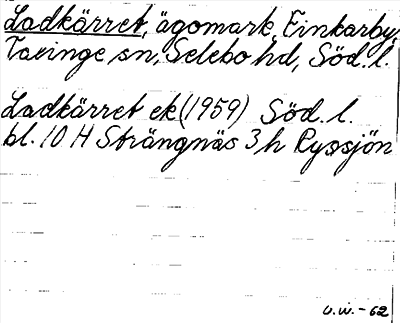 Ladkärret, ägomark, Finkarby,
Taxinge sn, Selebo hd, Söd. l.
Ladkärret ek (1959) Söd. l.
bl. 10 H Strängnäs 3 h Ryssjön
U.W. - 62